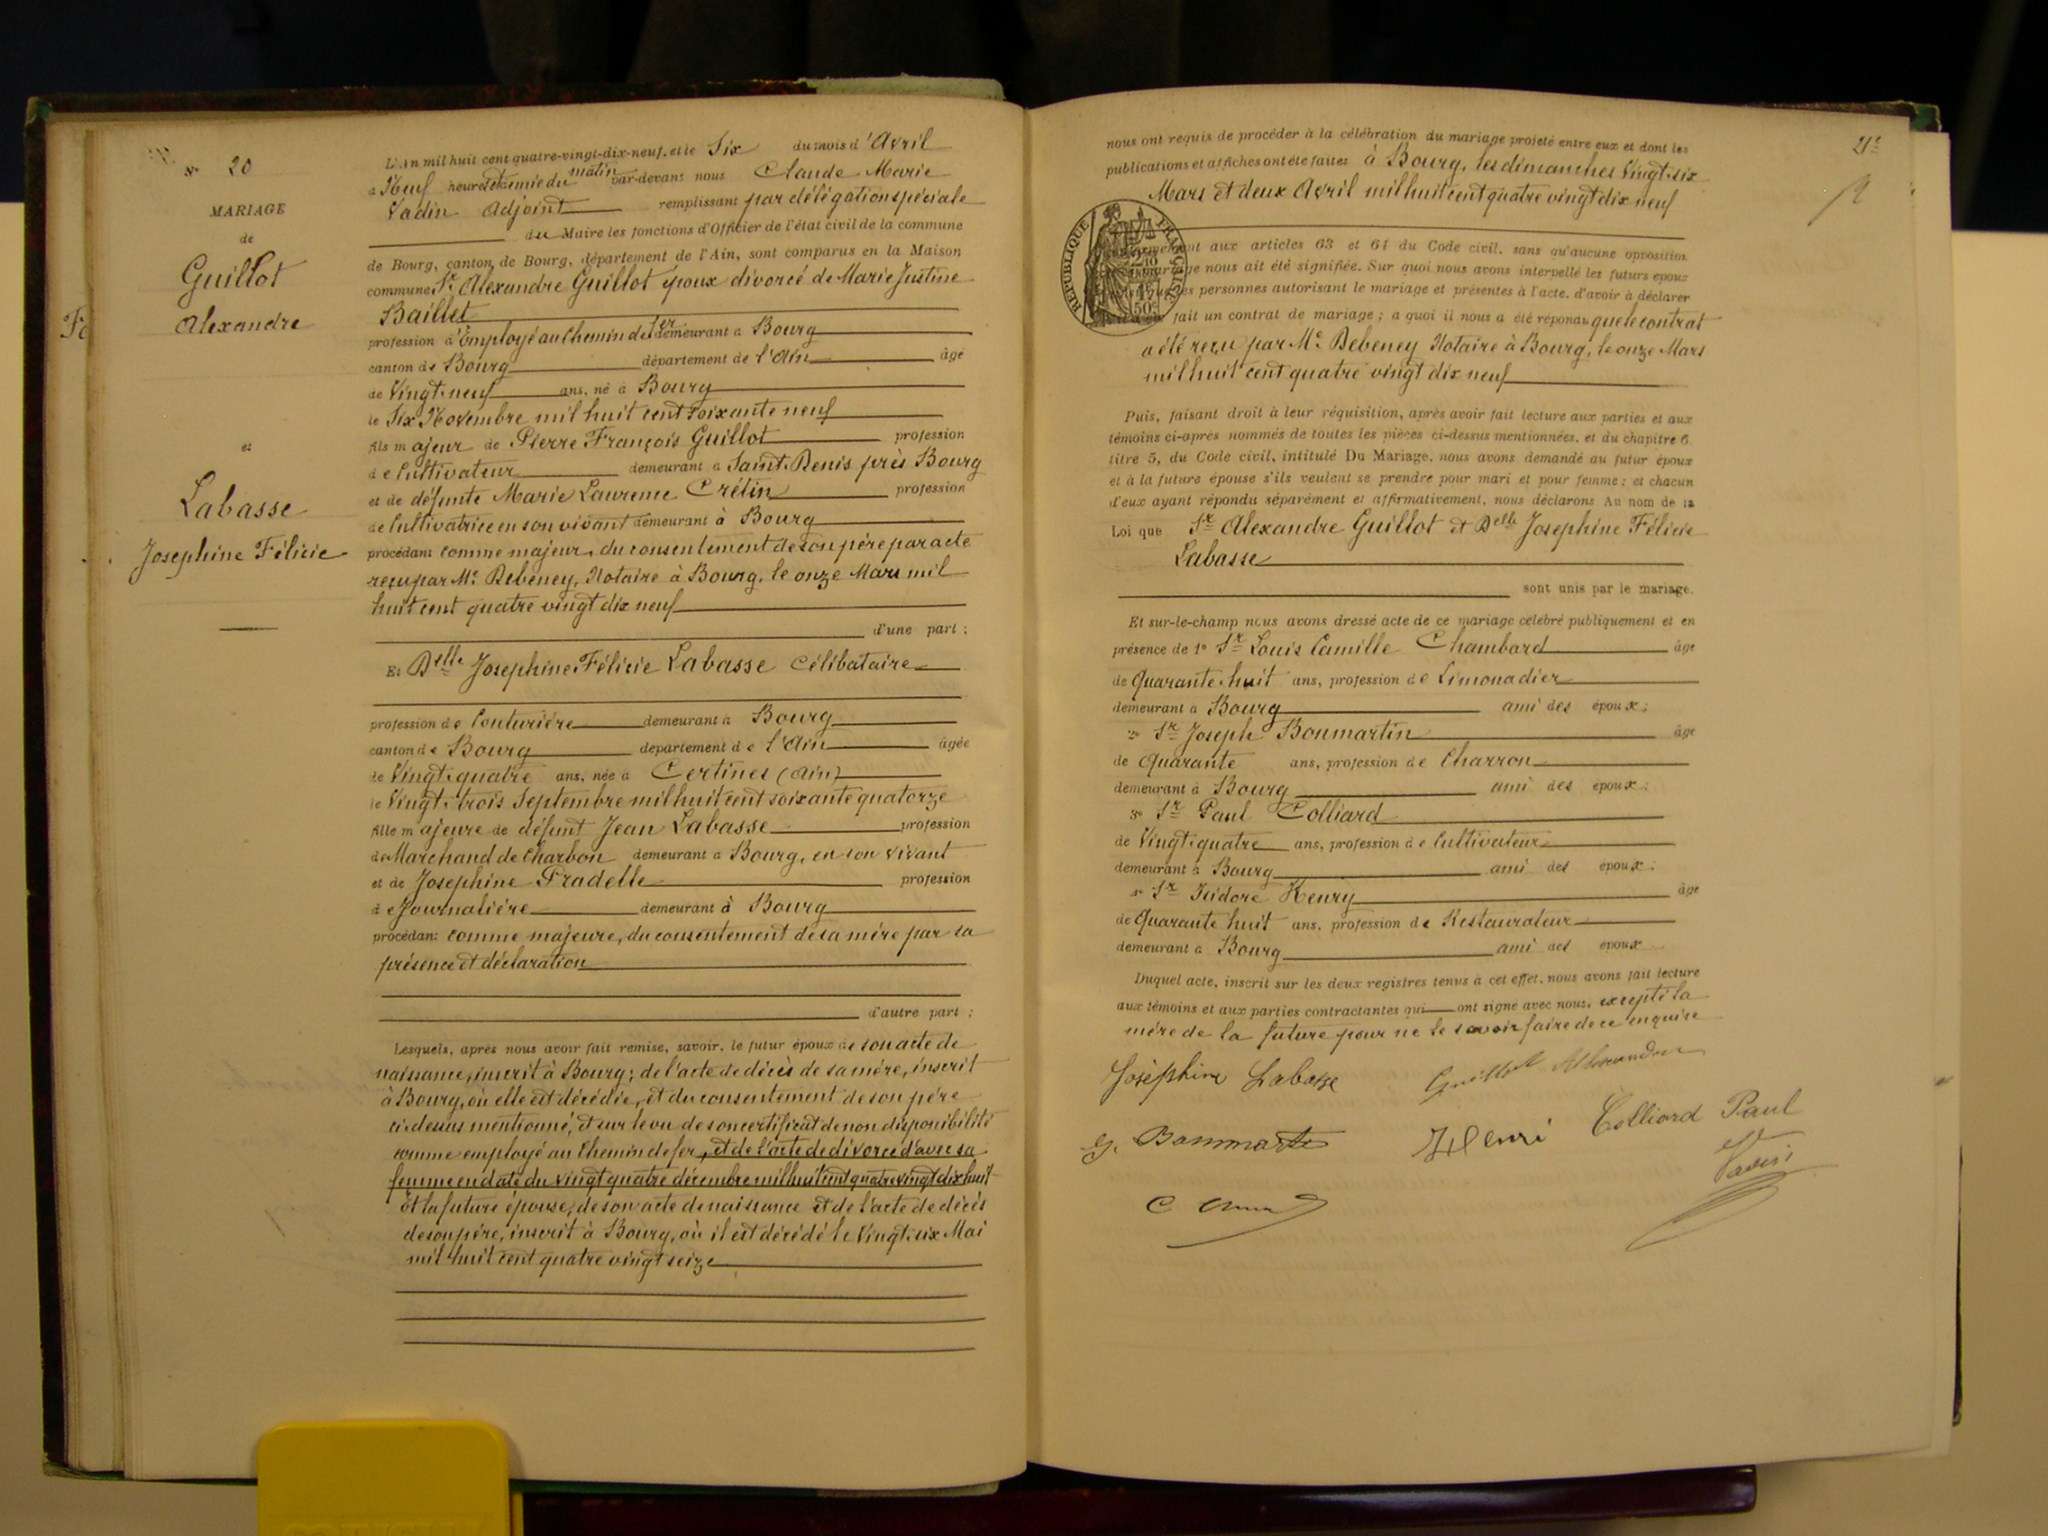 N° 20
MARIAGE
de
Guillot
Alexandre
et
Labasse
Josephine Félicie
L'An mil huit cent quatre-vingt-dix-neuf, et le Six du mois d'Avril
à Neuf heures et demie du matin par-devant nous Claude Marie
Vadin Adjoint remplissant par délégation spéciale
du Maire les fonctions d'Officier de l'état civil de la commune
de Bourg, canton de Bourg, département de l'Ain, sont comparus en la Maison
commune Sr Alexandre Guillot époux divorcé de Marie Justine
Baillet
profession d'Employé au Chemin de fer demeurant à Bourg
canton de Bourg département de l'Ain âgé
de Vingt-neuf ans, né à Bourg
le Six Novembre mil huit cent soixante neuf
fils majeur de Pierre François Guillot profession
de Cultivateur demeurant à Saint-Denis près Bourg
et de défunte Marie Laurence Crétin profession
de Cultivatrice en son vivant demeurant à Bourg
procédant comme majeur, du consentement de son père par acte
reçu par Me Debeney, Notaire à Bourg, le onze Mars mil
huit cent quatre vingt dix neuf
d'une part;
Et Delle Josephine Félicie Labasse Célibataire
profession de Couturière demeurant à Bourg
canton de Bourg département de l'Ain âgée
de Vingt-quatre ans, née à Certines (Ain)
le Vingt-trois Septembre mil huit cent soixante quatorze
fille majeure de défunt Jean Labasse profession
de Marchand de Charbon demeurant à Bourg, en son vivant
et de Josephine Fradelle profession
de Journalière demeurant à Bourg
procédant comme majeure, du consentement de sa mère par sa
présence et déclaration
d'autre part;
Lesquels, après nous avoir fait remise, savoir, le futur époux de son acte de
naissance, inscrit à Bourg; de l'acte de décès de sa mère, inscrit
à Bourg, où elle est décédée, et du consentement de son père
ci-dessus mentionné, et sur le vu de son certificat de non disponibilité
comme employé au Chemin de fer, et de l'acte de divorce d'avec sa
femme en date du vingt quatre décembre mil huit cent quatre vingt dix huit
Et la future épouse, de son acte de naissance et de l'acte de décès
de son père, inscrit à Bourg, où il est décédé le Vingt-six Mai
mil huit cent quatre vingt seize
21
nous ont requis de procéder à la célébration du mariage projeté entre eux et dont les
publications et affiches ont été faites à Bourg, les dimanches Vingt-six
Mars et deux Avril mil huit cent quatre vingt dix neuf
RÉPUBLIQUE FRANÇAISE
aux articles 63 et 64 du Code civil, sans qu'aucune opposition
mariage nous ait été signifiée. Sur quoi nous avons interpellé les futurs époux
les personnes autorisant le mariage et présentes à l'acte, d'avoir à déclarer
fait un contrat de mariage; à quoi il nous a été répondu que le contrat
a été reçu par Me Debeney Notaire à Bourg, le onze Mars
mil huit cent quatre vingt dix neuf
Puis, faisant droit à leur réquisition, après avoir fait lecture aux parties et aux
témoins ci-après nommés de toutes les pièces ci-dessus mentionnées, et du chapitre 6,
titre 5, du Code civil, intitulé Du Mariage, nous avons demandé au futur époux
et à la future épouse s'ils veulent se prendre pour mari et pour femme; et chacun
d'eux ayant répondu séparément et affirmativement, nous déclarons Au nom de la
Loi que Sr Alexandre Guillot et Delle Josephine Félicie
Labasse
sont unis par le mariage.
Et sur-le-champ nous avons dressé acte de ce mariage célébré publiquement et en
présence de 1° Sr Louis Camille Chambard âgé
de Quarante-huit ans, profession de Limonadier
demeurant à Bourg ami des époux;
2° Sr Joseph Bonmartin âgé
de Quarante ans, profession de Charron
demeurant à Bourg ami des époux;
3° Sr Paul Colliard
de Vingt-quatre ans, profession de Cultivateur
demeurant à Bourg ami des époux;
Sr Isidore Henry âgé
de Quarante huit ans, profession de Restaurateur
demeurant à Bourg ami des époux
Duquel acte, inscrit sur les deux registres tenus à cet effet, nous avons fait lecture
aux témoins et aux parties contractantes qui ont signé avec nous, excepté la
mère de la future pour ne le savoir faire de ce enquise
Joséphine Labasse Guillot Alexandre
Bonmartin Henri Colliard Paul
Vadin